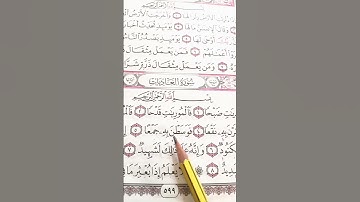 وَأَخْرَجَتِ ٱلْأَرْضُ
يَوْمَئِذٍ تُحَدِّثُ
أَوْحَىٰ لَهَا ٥ يَوْمَئِذٍ يَصْدُرُ
أَعْمَٰلَهُمْ ٦ فَمَن يَعْمَلْ مِثْقَالَ
٧ وَمَن يَعْمَلْ مِثْقَالَ ذَرَّةٍ شَرًّا
سُورَةُ الْعَادِيَاتِ
بِسْمِ ٱللَّهِ ٱلرَّحْمَٰنِ ٱلرَّحِيمِ
ضَبْحًا ١ فَٱلْمُورِيَٰتِ قَدْحًا ٢
بِهِۦ نَقْعًا ٤ فَوَسَطْنَ بِهِۦ جَمْعًا ٥
لَكَنُودٌ ٦ وَإِنَّهُۥ عَلَىٰ ذَٰلِكَ لَشَهِيدٌ ٧
٨ يَعْلَمُ إِذَا بُعْثِرَ مَا
٥٩٩